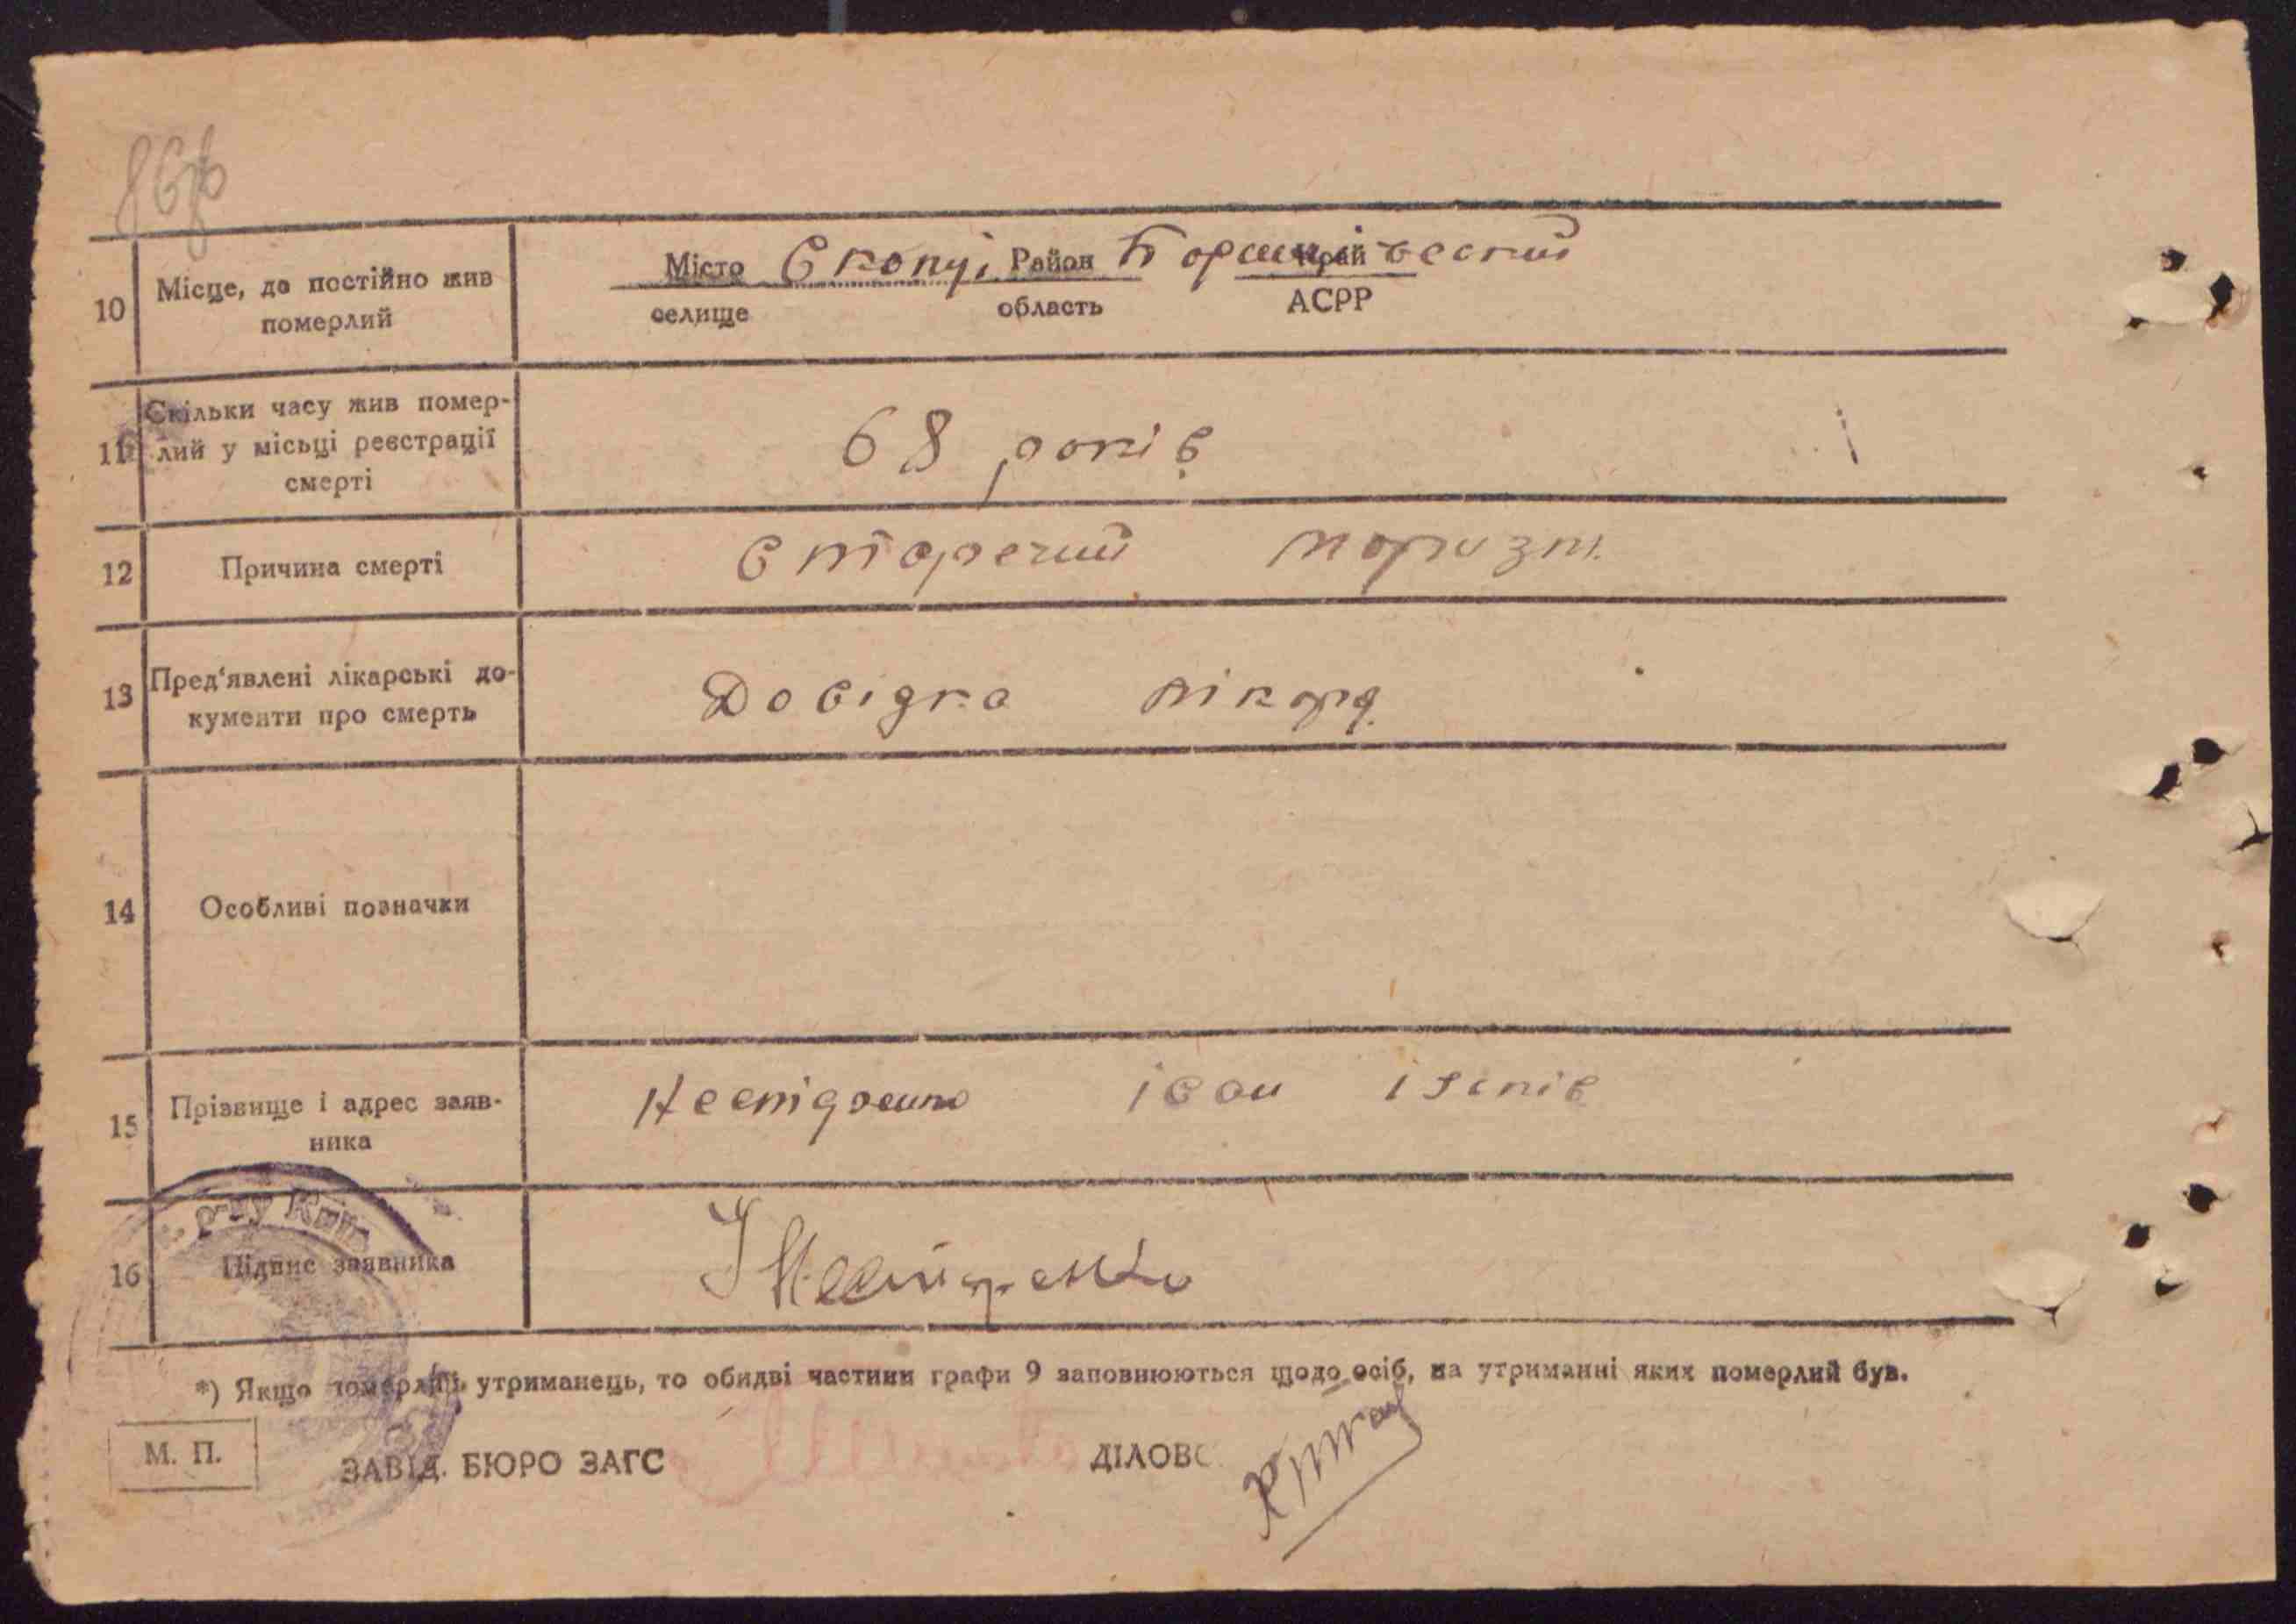 10 Місце, де постійно жив померлий
Місто Скопці Район Баришівський Край
селище область АСРР
11 Скільки часу жив помер-
лий у місьці реєстрації
смерті
68 років
12 Причина смерті
Старечий моризм.
13 Пред'явлені лікарські до-
кументи про смерть
Довідка лікаря
14 Особливі позначки
15 Прізвище і адрес заяв-
ника
Нестіренко іван
р-ну Київ
16 Підпис заявника
І Нестіренко
*) Якщо померлий утриманець, то обидві частини графи 9 заповнюються щодо осіб, на утриманні яких померлий був.
М. П.
ЗАВІД. БЮРО ЗАГС ДІЛОВ